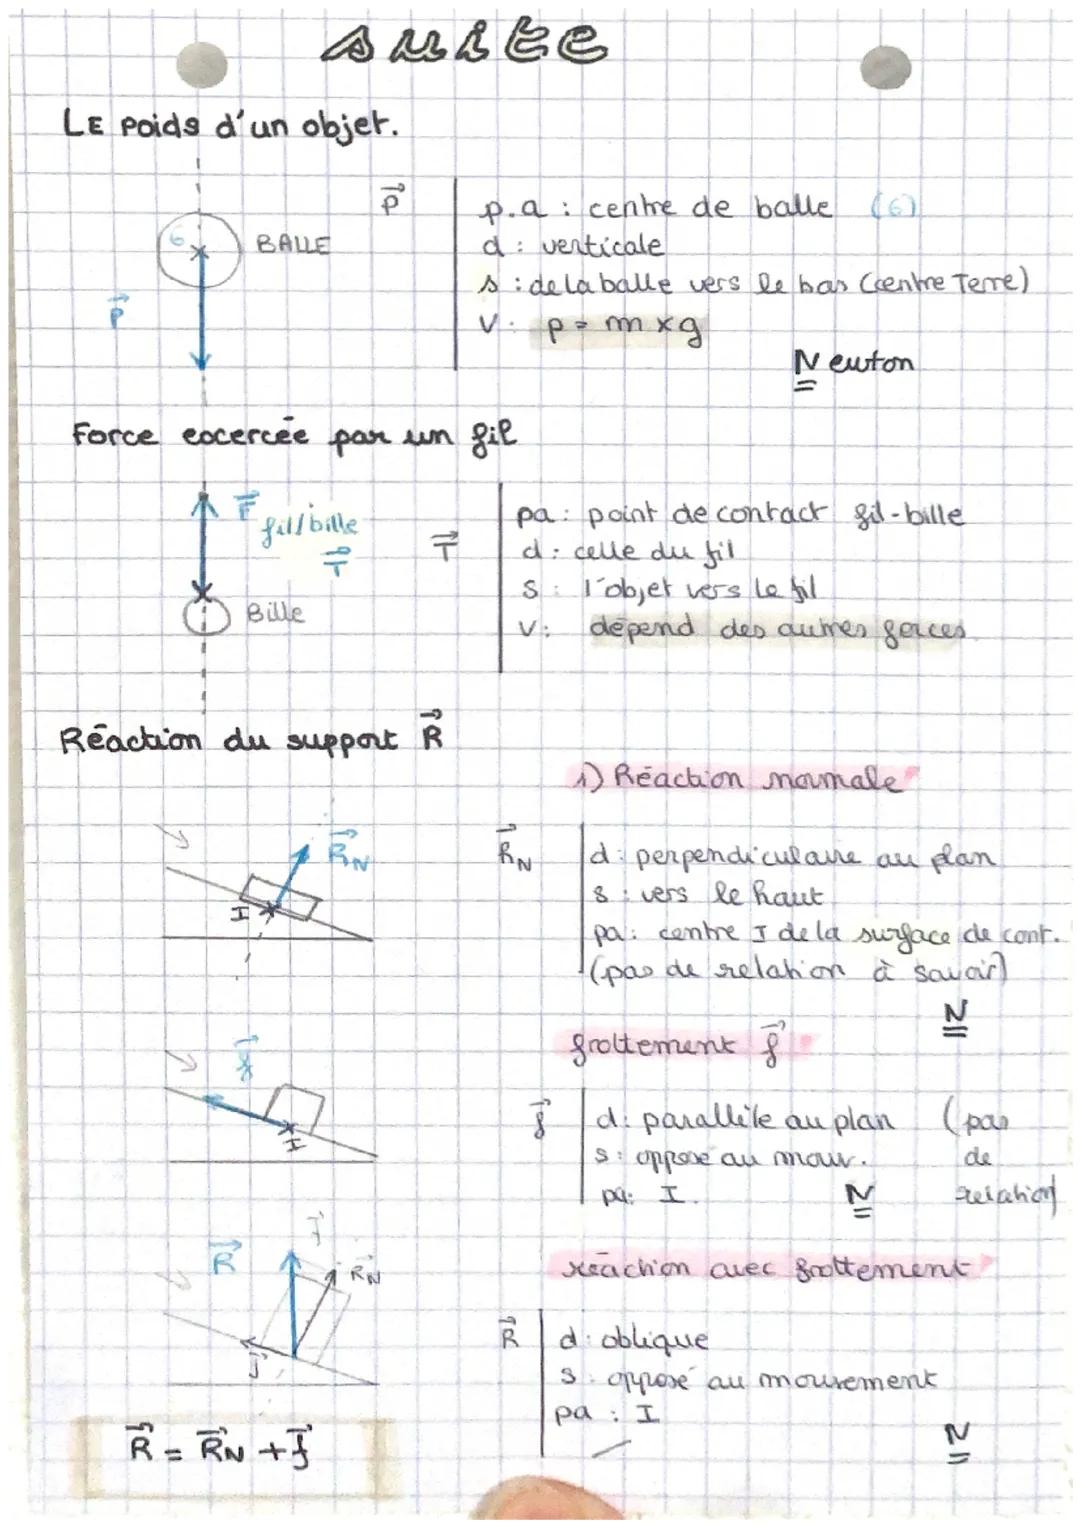 suite
LE poids d'un objet.
P
p.a : centre de balle (G)
G
BALLE
d : verticale
s : de la balle vers le bas (centre Terre)
P
V : p = m x g
Newton
Force exercée par un fil
F fil/bille
T
T
pa : point de contact fil-bille
d : celle du fil
s : l'objet vers le fil
v : dépend des autres forces
Bille
Réaction du support R
1) Réaction normale
RN
I
RN
d : perpendiculaire au plan
s : vers le haut
pa : centre I de la surface de cont.
(pas de relation à savoir)
N
frottement f
f
I
f
d : parallèle au plan (pas
s : opposé au mouv. de
pa : I. N relation)
réaction avec frottement
R
RN
f
R
d : oblique
s : opposé au mouvement
pa : I
N
R = RN + f